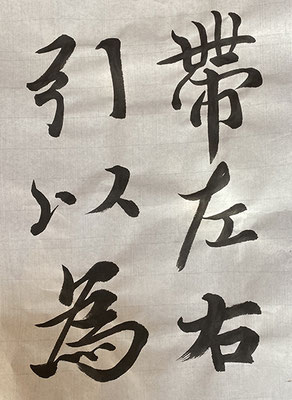 帶左右
引以為